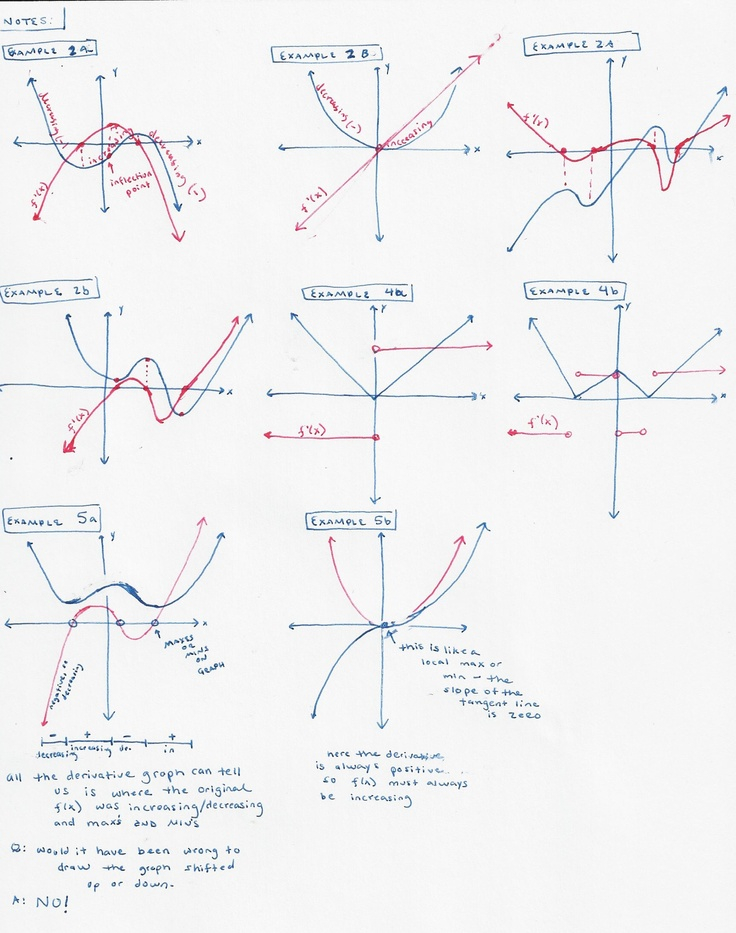 NOTES:
EXAMPLE 2a
y
x
decreasing (-)
increasing
decreasing (-)
inflection
point
f'(x)
EXAMPLE 2B
y
x
decreasing (-)
increasing
f'(x)
EXAMPLE 2A
y
x
f'(x)
EXAMPLE 2b
y
x
f'(x)
EXAMPLE 4a
y
x
f'(x)
EXAMPLE 4b
y
x
f'(x)
EXAMPLE 5a
y
x
MAXES
OR
MINS
ON
GRAPH
negative so
decreasing
- + - +
decreasing increasing de. in
all the derivative graph can tell
us is where the original
f(x) was increasing/decreasing
and max's AND MIN'S
Q: would it have been wrong to
draw the graph shifted
up or down.
A: NO!
EXAMPLE 5b
y
x
this is like a
local max or
min - the
slope of the
tangent line
is zero
here the derivative
is always positive...
so f(x) must always
be increasing